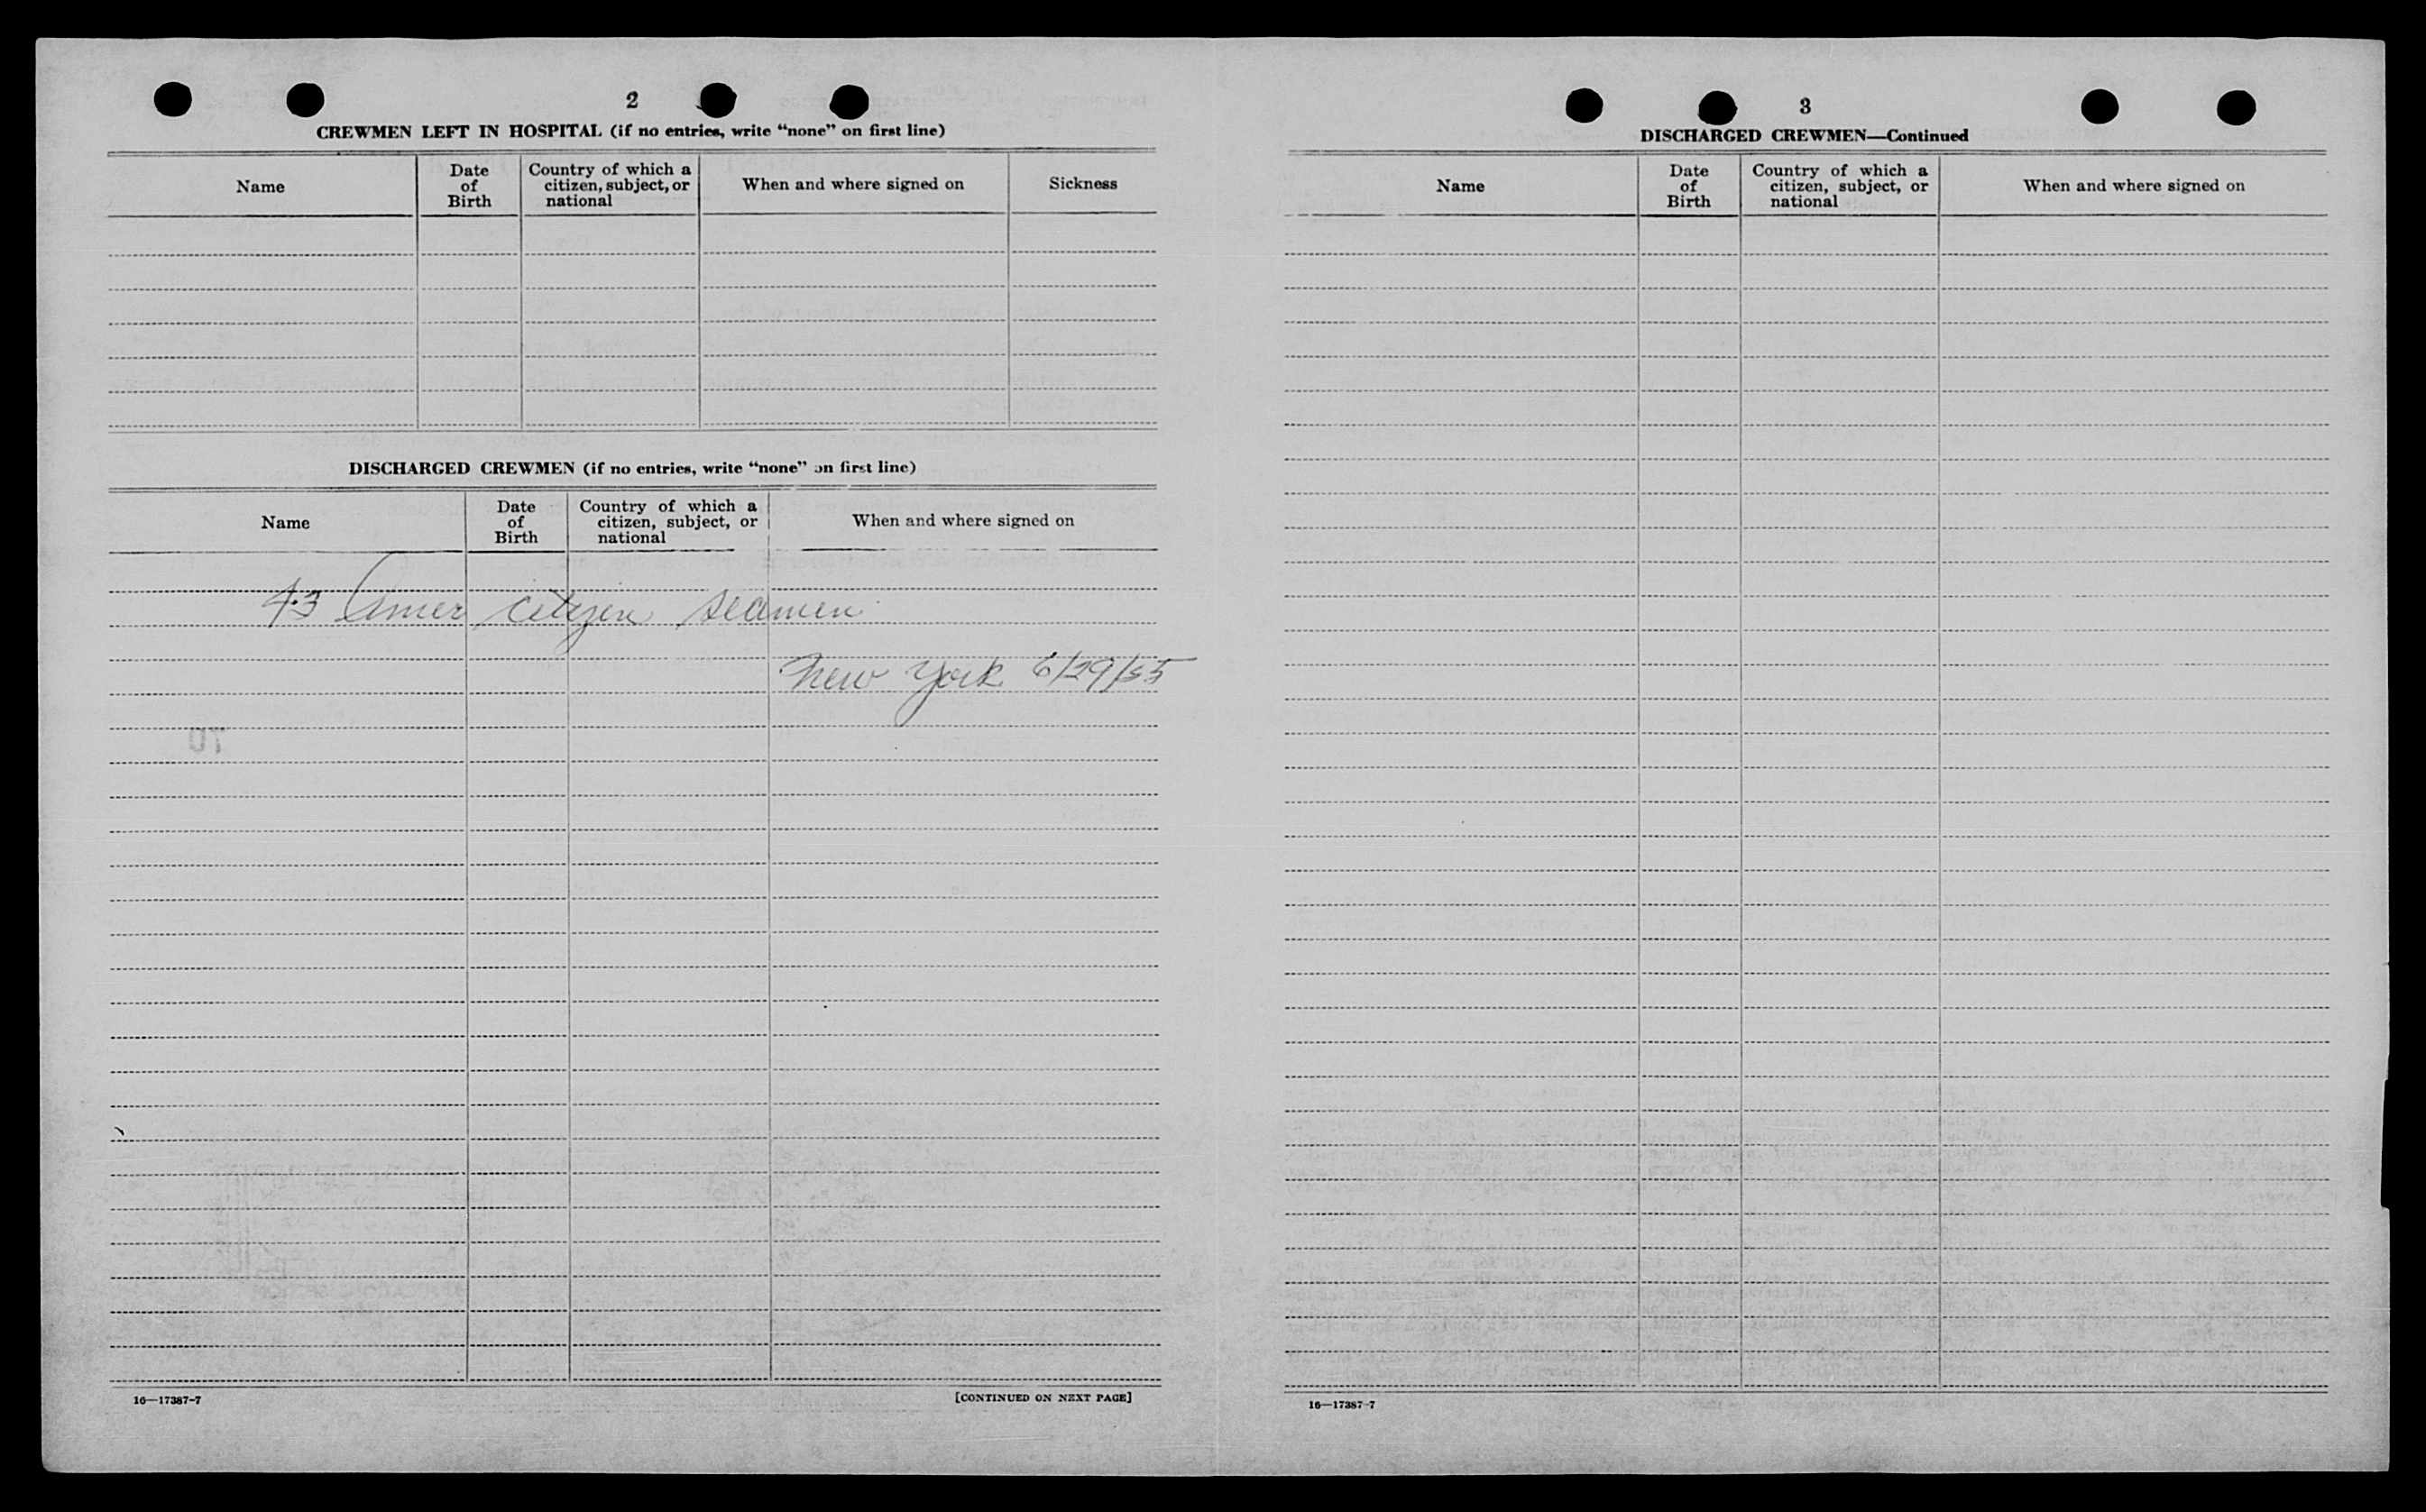 2
CREWMEN LEFT IN HOSPITAL (if no entries, write "none" on first line)
Name
Date of Birth
Country of which a citizen, subject, or national
When and where signed on
Sickness
DISCHARGED CREWMEN (if no entries, write "none" on first line)
Name
Date of Birth
Country of which a citizen, subject, or national
When and where signed on
43 Amer citizen seamen
New York 6/29/55
16—17387-7
[CONTINUED ON NEXT PAGE]
3
DISCHARGED CREWMEN—Continued
Name
Date of Birth
Country of which a citizen, subject, or national
When and where signed on
16—17387-7